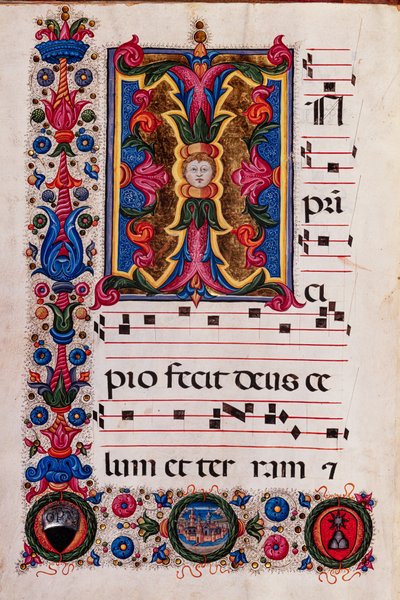 IN
prī
ci
pio fecit deus ce
lum et ter ram ⁊